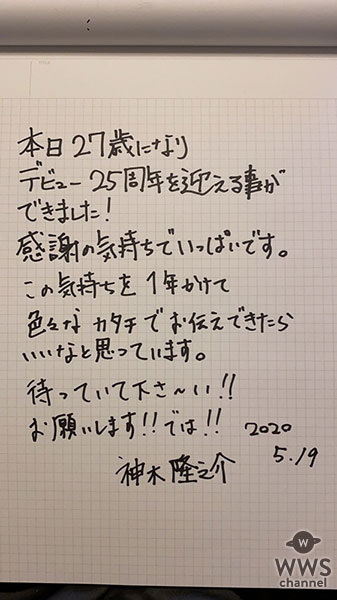 本日27歳になり
デビュー25周年を迎える事が
できました!
感謝の気持ちでいっぱいです。
この気持ちを1年かけて
色々なカタチでお伝えできたら
いいなと思っています。
待っていて下さ〜い!!
お願いします!!では!!
2020
5.19
神木隆之介
W
WWS
channel